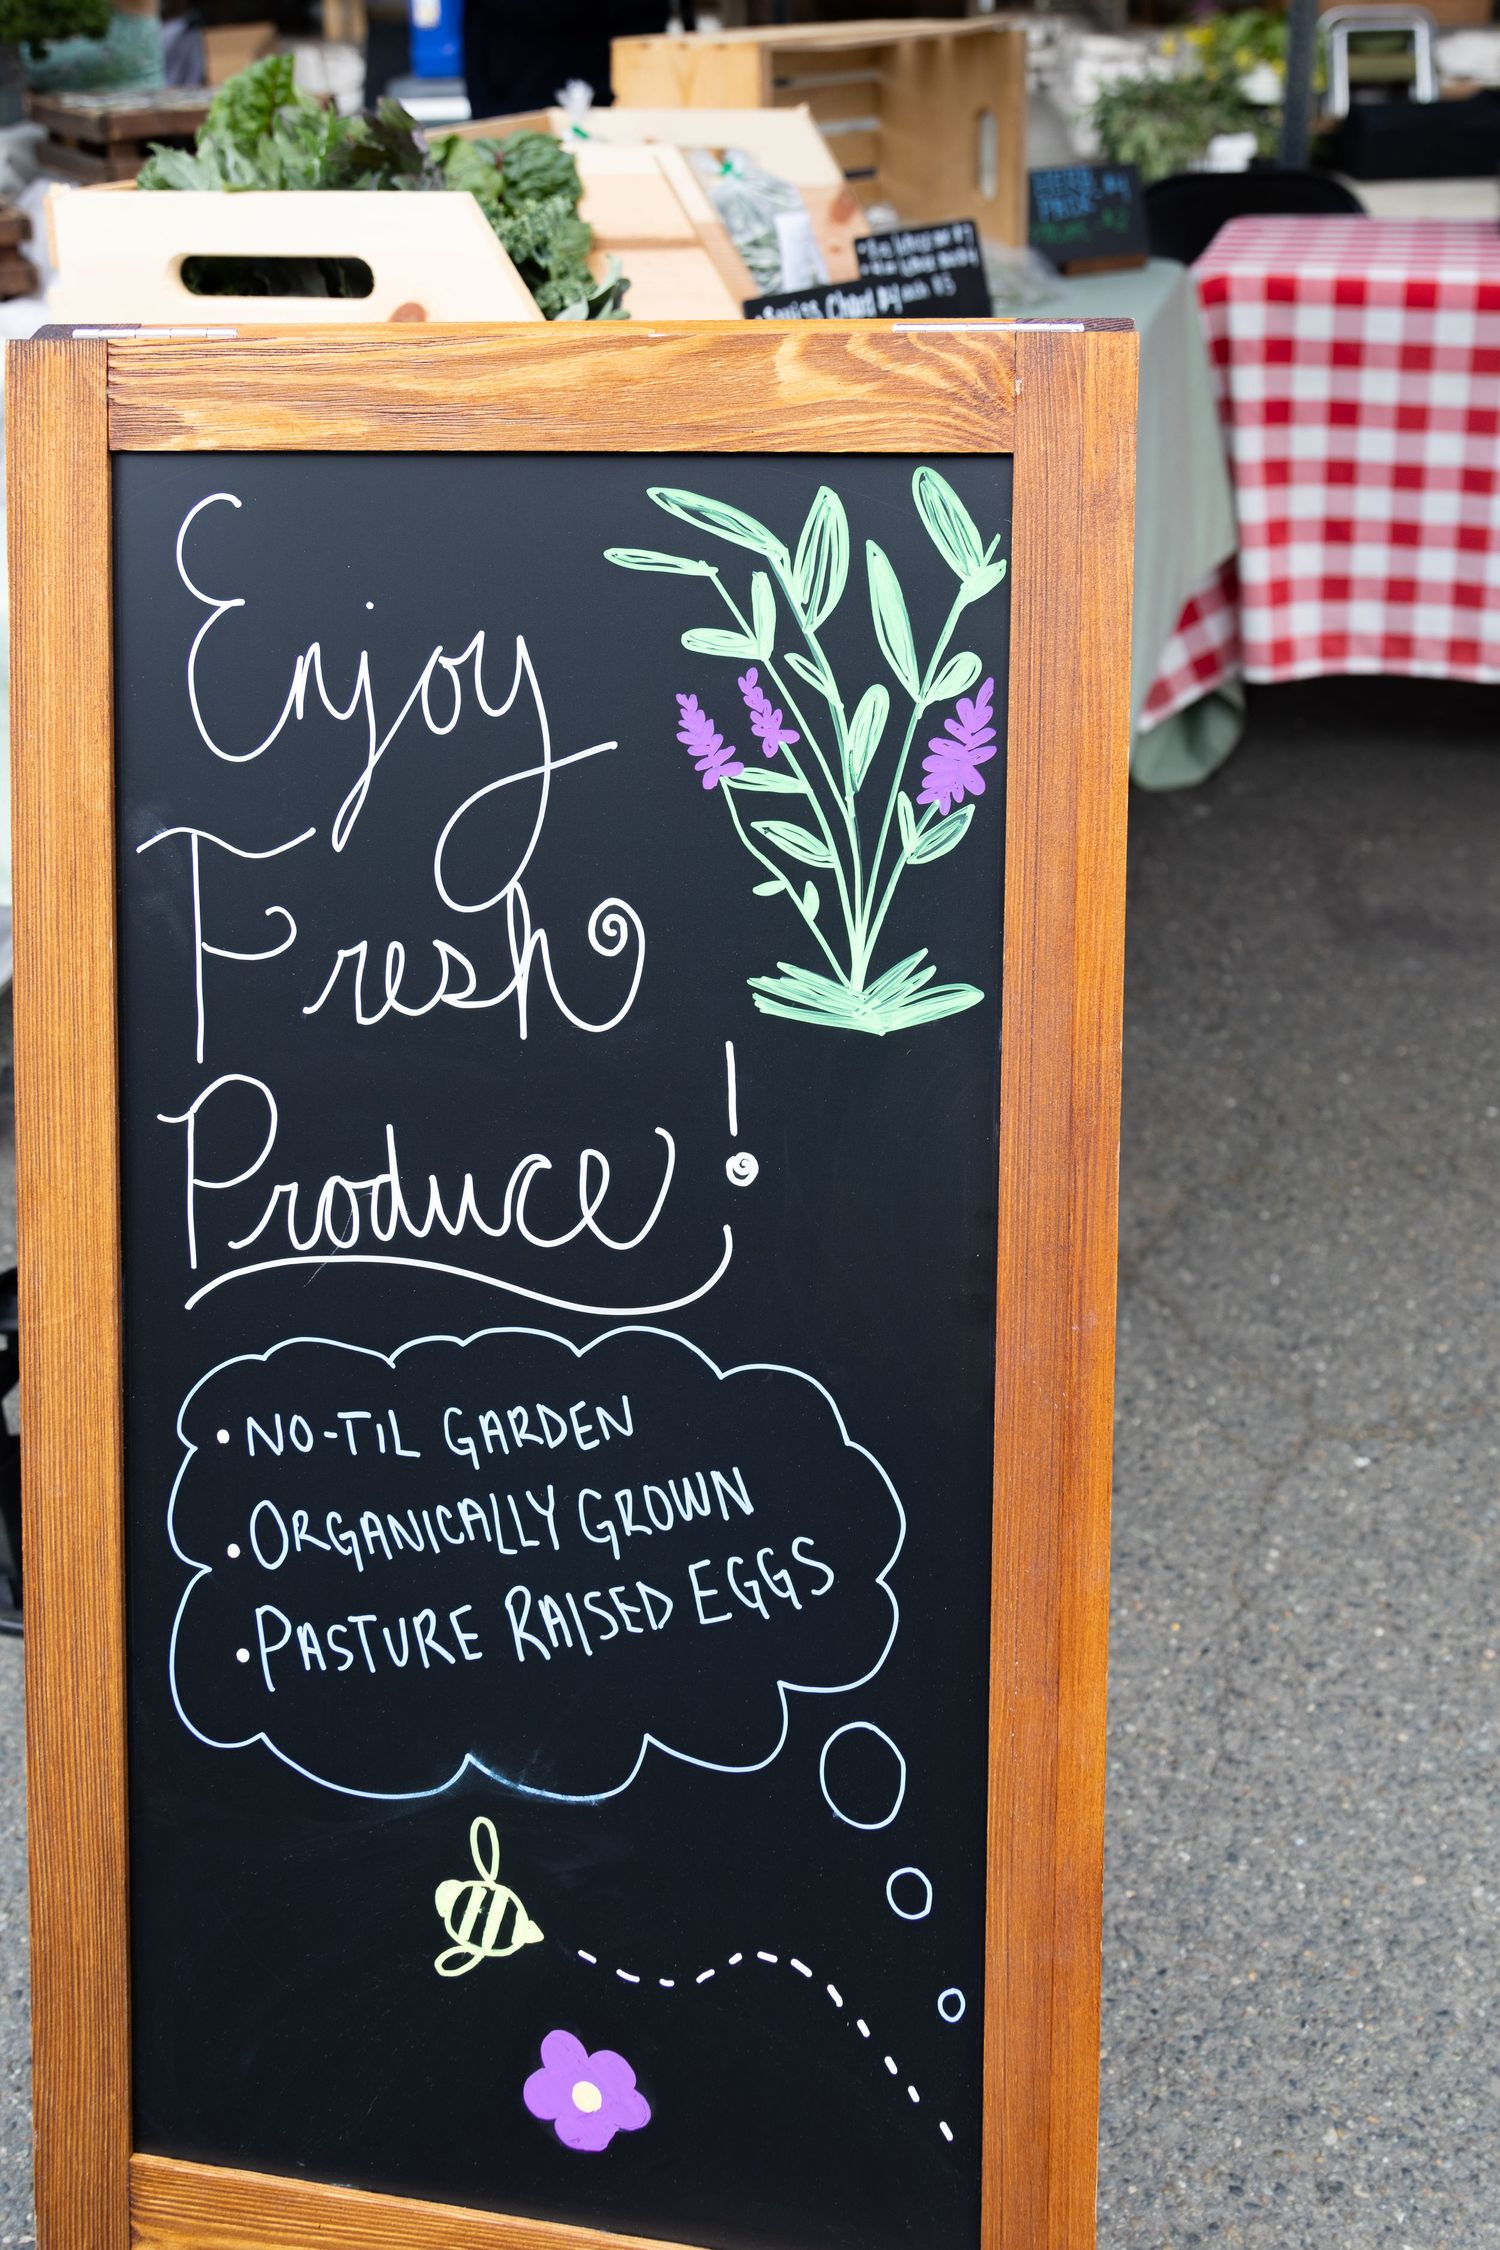 Swiss Chard
Enjoy
Fresh
Produce!
• NO-TIL GARDEN
• ORGANICALLY GROWN
• PASTURE RAISED EGGS